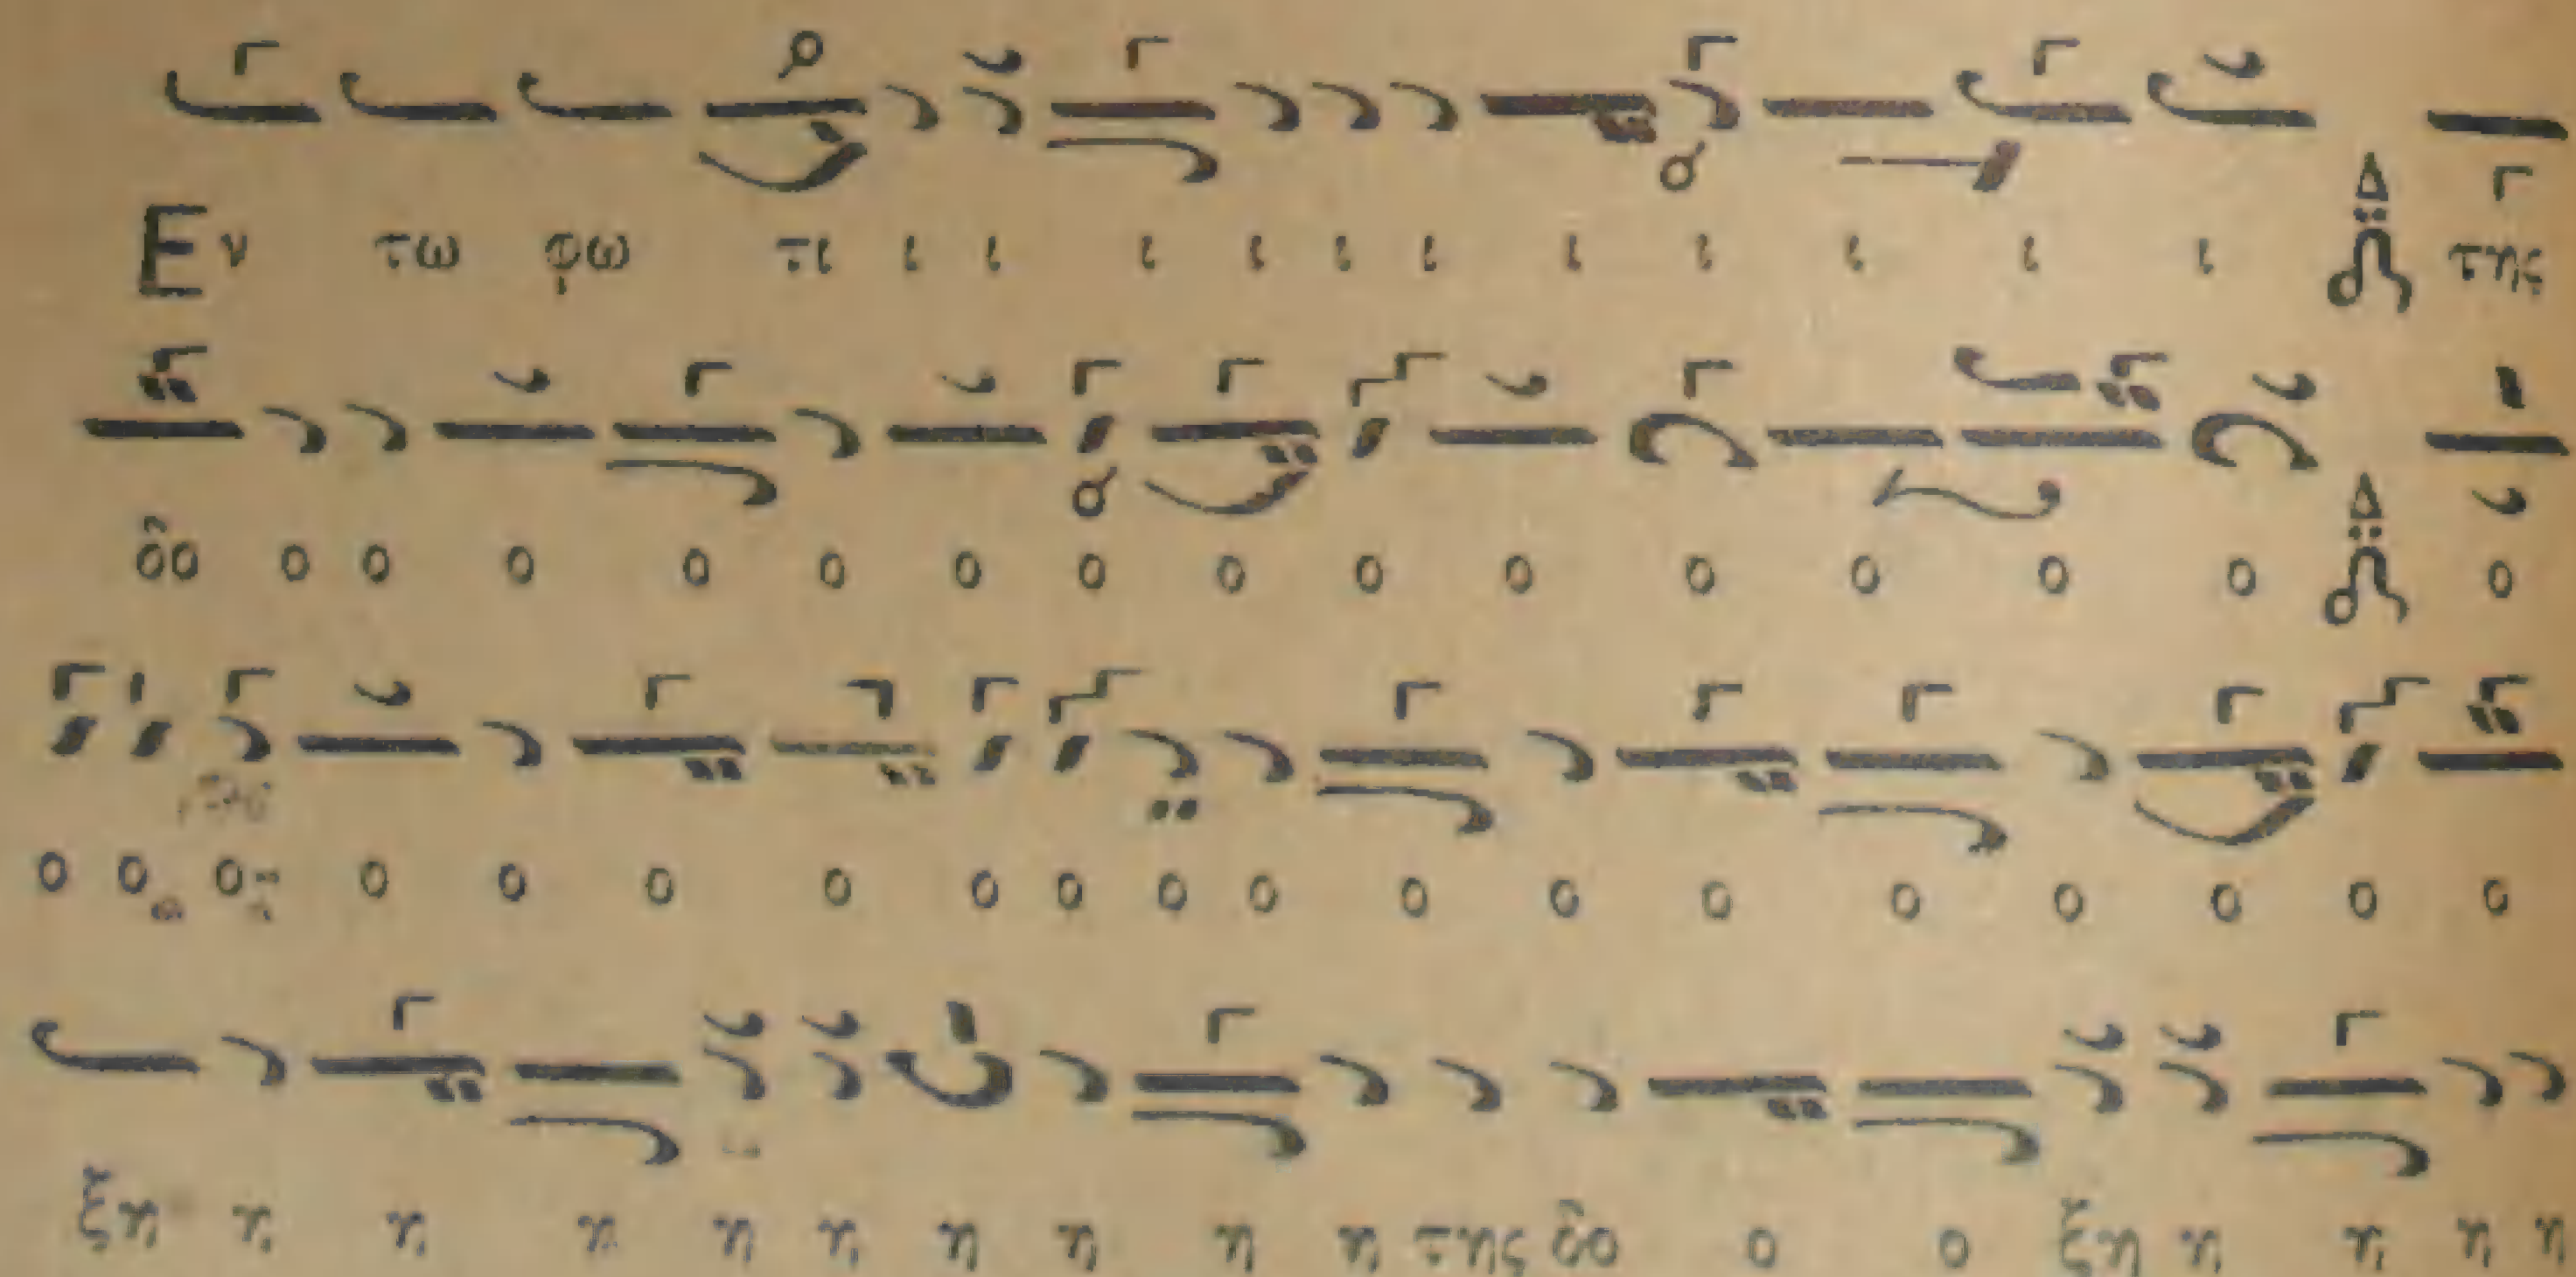 Εν τω φω τι ι ι ι ι ι ι ι ι ι ι ι της
δο ο ο ο ο ο ο ο ο ο ο ο ο ο ο ο
ο ο ο ο ο ο ο ο ο ο ο ο ο ο ο ο ο ο ο
ξη η η η η η η η η η της δο ο ο ξη η η η η